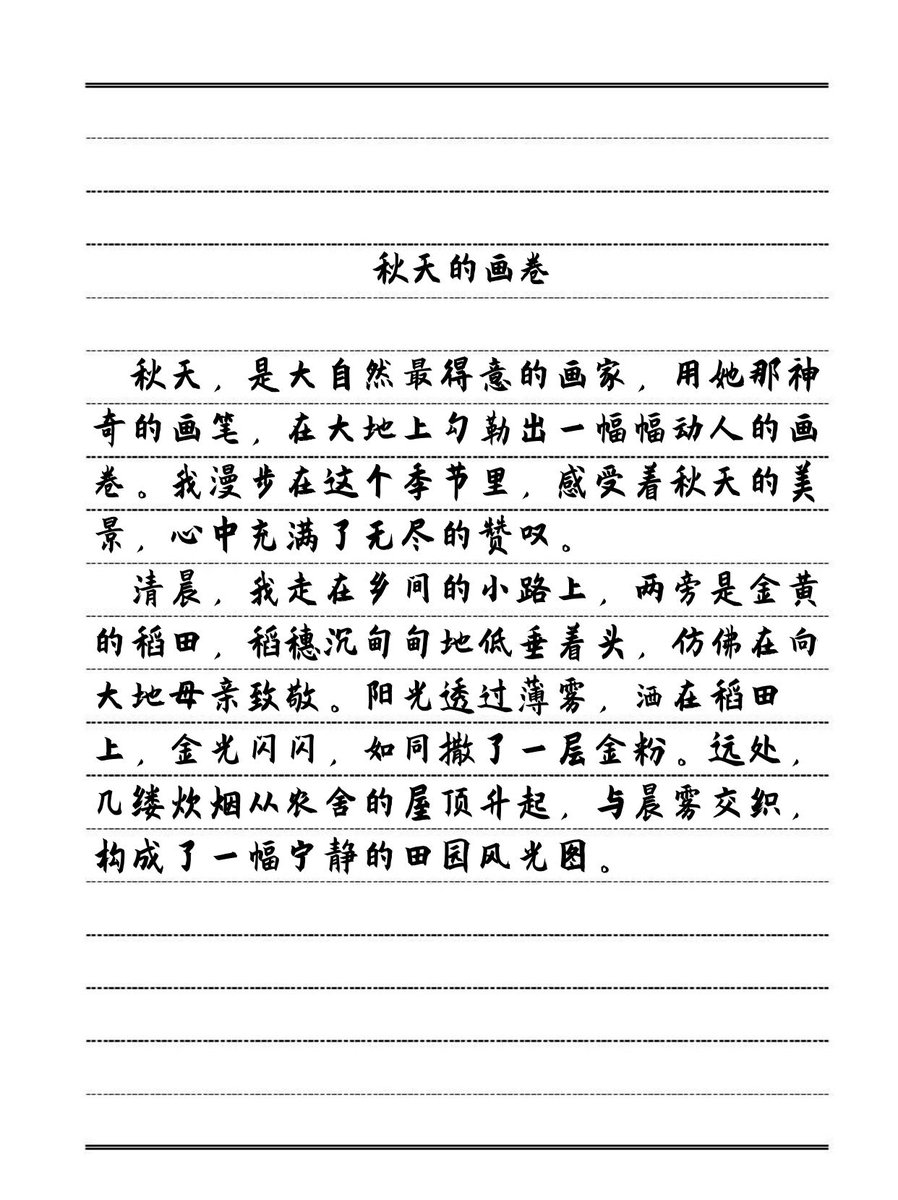 秋天的画卷
秋天，是大自然最得意的画家，用她那神
奇的画笔，在大地上勾勒出一幅幅动人的画
卷。我漫步在这个季节里，感受着秋天的美
景，心中充满了无尽的赞叹。
清晨，我走在乡间的小路上，两旁是金黄
的稻田，稻穗沉甸甸地低垂着头，仿佛在向
大地母亲致敬。阳光透过薄雾，洒在稻田
上，金光闪闪，如同撒了一层金粉。远处，
几缕炊烟从农舍的屋顶升起，与晨雾交织，
构成了一幅宁静的田园风光图。